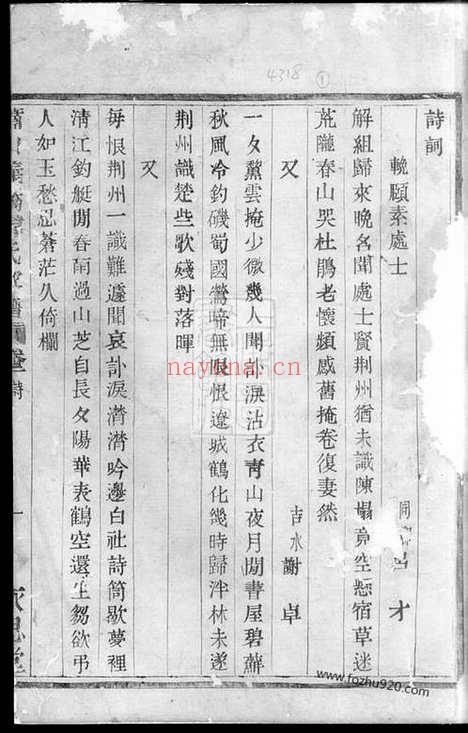 4318
①
詩詞
輓願素處士
同
才
解組歸來晚名聞處士賢荆州猶未識陳榻竟空懸宿草迷
荒隴春山哭杜鵑老懷頻感舊掩卷復妻然
又
吉水謝卓
一夕黨雲掩少微幾人聞訃淚沾衣青山夜月閒書屋碧蘚
秋風冷釣磯蜀國鶯啼無限恨遼城鶴化幾時歸泮林未遂
荆州識楚些歌殘對落暉
又
每恨荆州一識難遽聞哀訃淚濟濟吟邊白社詩筒歇夢裡
清江釣艇閒春雨過山芝自長夕陽華表鶴空還生芻欲弔
人如玉愁忍蒼茫久倚欄
氏
譜
詩
一
nayona.cn
www.fozhu920.com